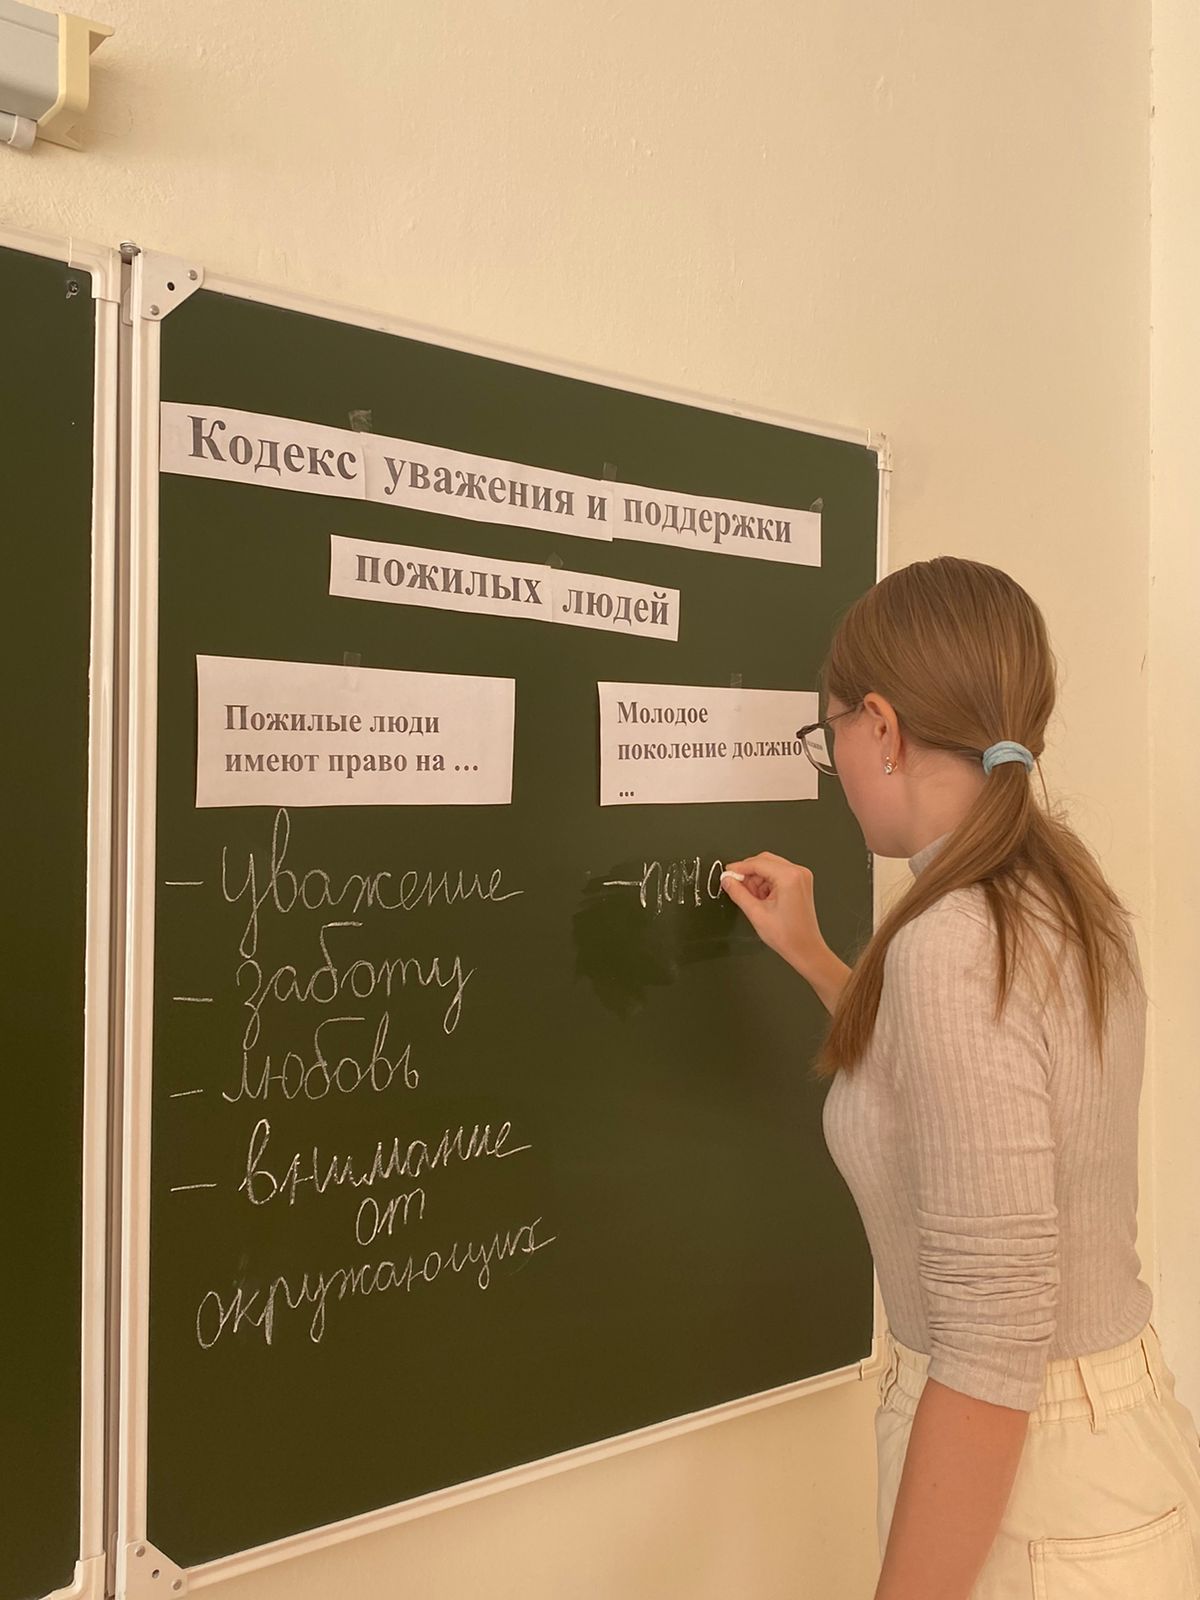 Кодекс уважения и поддержки
пожилых людей
Пожилые люди
имеют право на ...
- уважение
- заботу
- любовь
- внимание
от
окружающих
Молодое
поколение должно
...
- помо